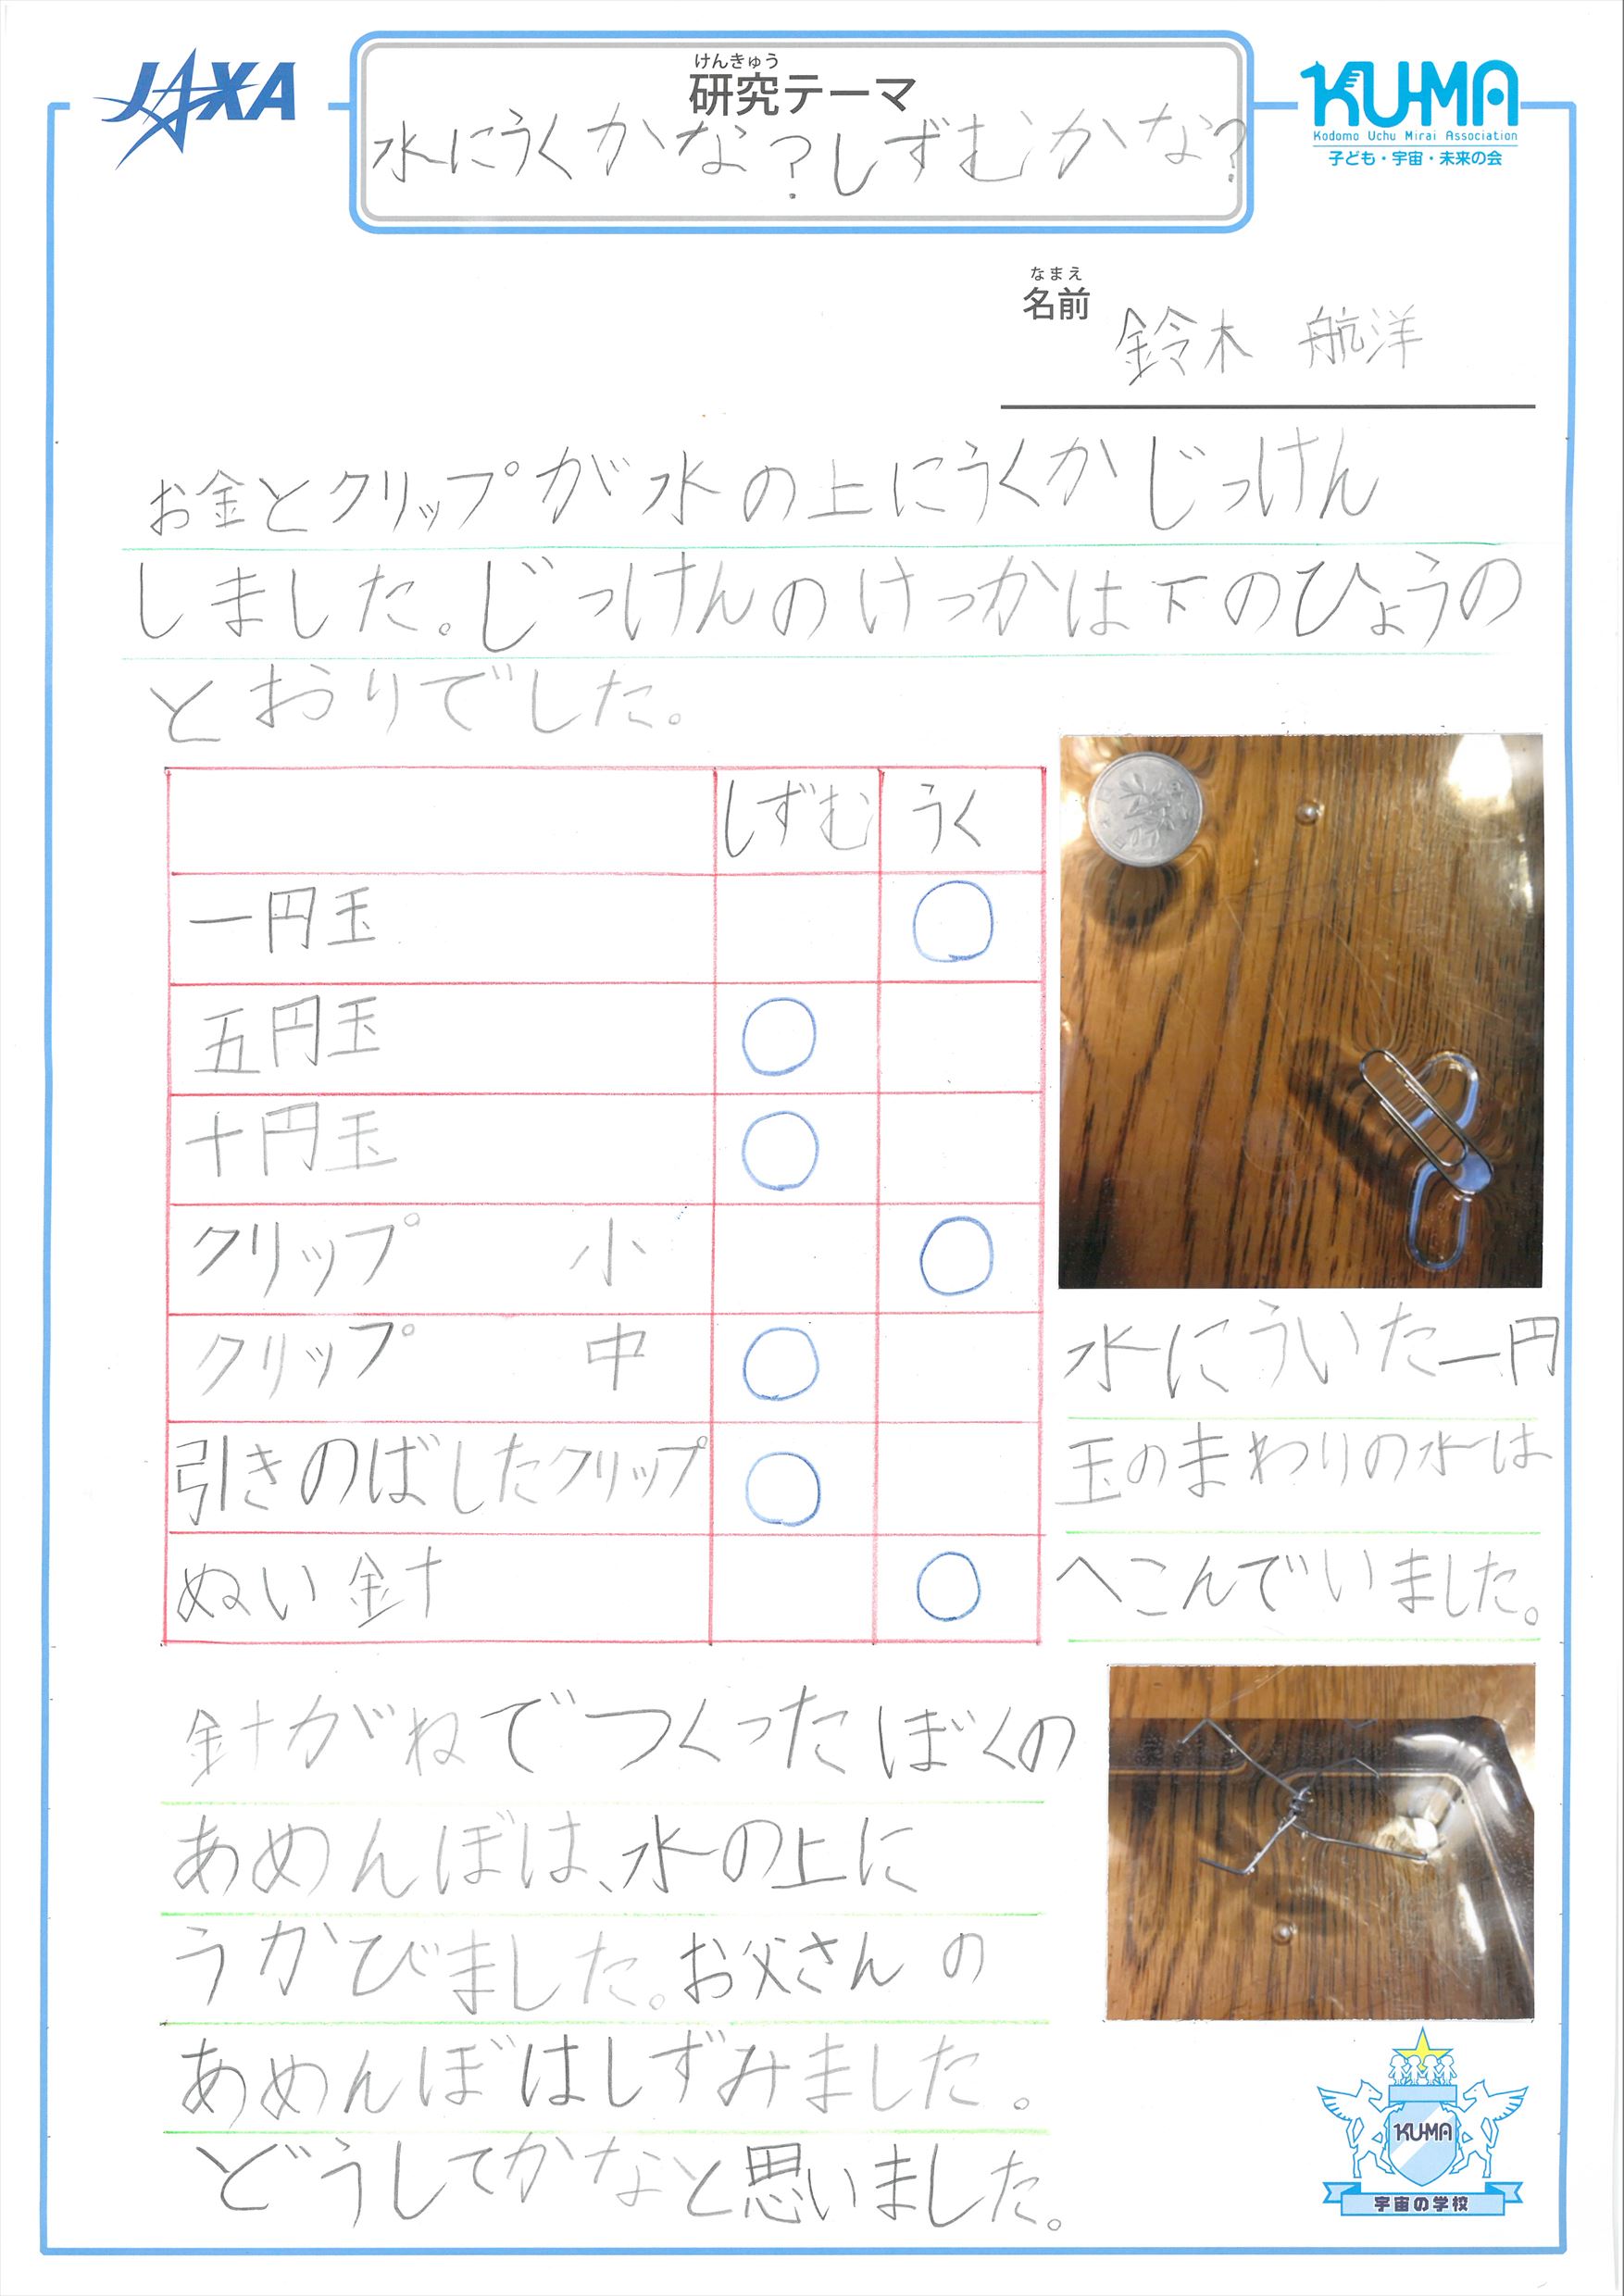 JAXA
けんきゅう
研究テーマ
水にうくかな?しずむかな?
KUMA
Kodomo Uchu Mirai Association
子ども・宇宙・未来の会
なまえ
名前 鈴木 航洋
お金とクリップが水の上にうくかじっけん
しました。じっけんのけっかは下のひょうの
とおりでした。
しずむ うく
一円玉 ○
五円玉 ○
十円玉 ○
クリップ 小 ○
クリップ 中 ○
引きのばしたクリップ ○
ぬい針 ○
水にういた一円
玉のまわりの水は
へこんでいました。
針がねでつくったぼくの
あめんぼは、水の上に
うかびました。お父さんの
あめんぼはしずみました。
どうしてかなと思いました。
KUMA
宇宙の学校